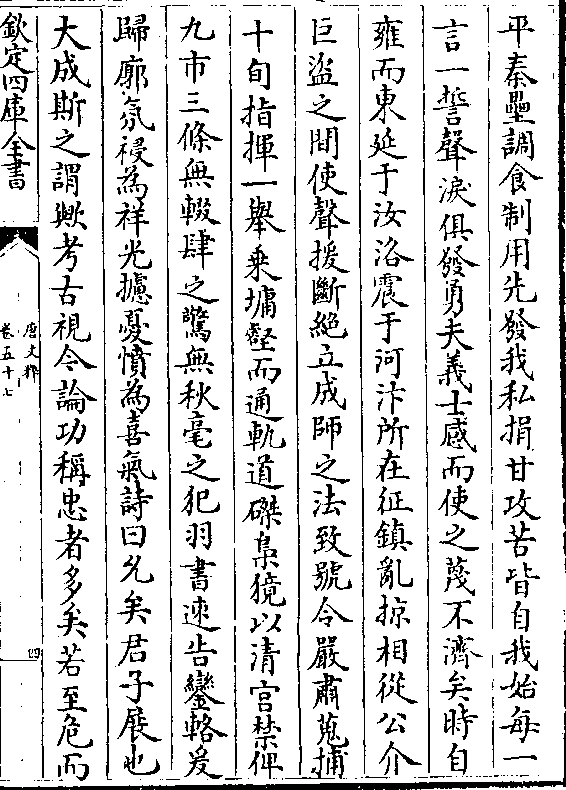 平秦壘調食制用先發我私捐甘攻苦皆自我始每一
言一誓聲淚俱發勇夫義士感而使之蔑不濟矣時自
雍而東延于汝洛震于河汴所在征鎮亂掠相從公介
巨盜之間使聲援斷絶立成師之法致號令嚴肅蒐捕
十旬指揮一舉乗墉壑而通軌道磔梟獍以清宫禁俾
九市三條無輟肆之驚無秋毫之犯羽書速告鑾輅爰
歸廓氛祲為祥光攄憂憤為喜氣詩曰允矣君子展也
大成斯之謂歟考古視今論功稱忠者多矣若至危而
欽定四庫全書
唐文粹
卷五十七
四